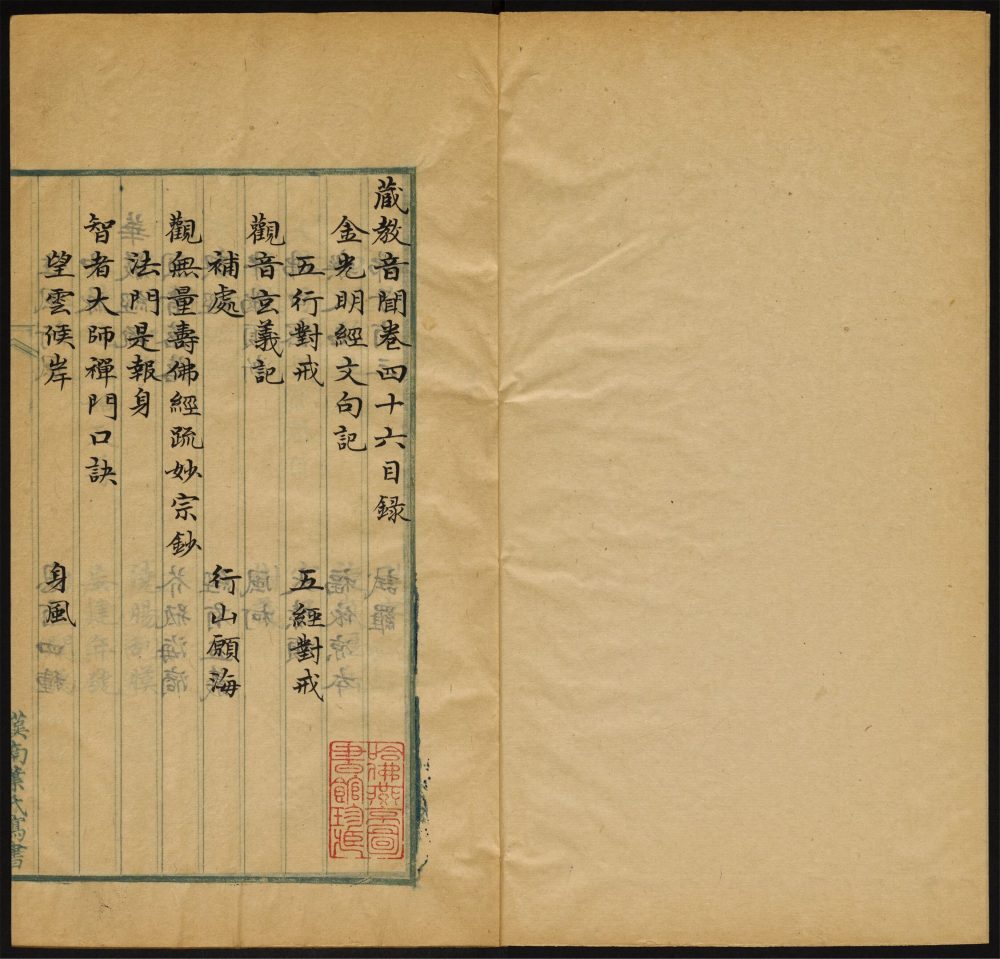 藏教音聞卷四十六目録
金光明經文句記
五行對戒　五經對戒
觀音玄義記
補處　行山願海
觀無量壽佛經疏妙宗鈔
法門是報身
智者大師禪門口訣
望雲候岸　身風
漢南葉氏寫書
哈佛燕
書館珍